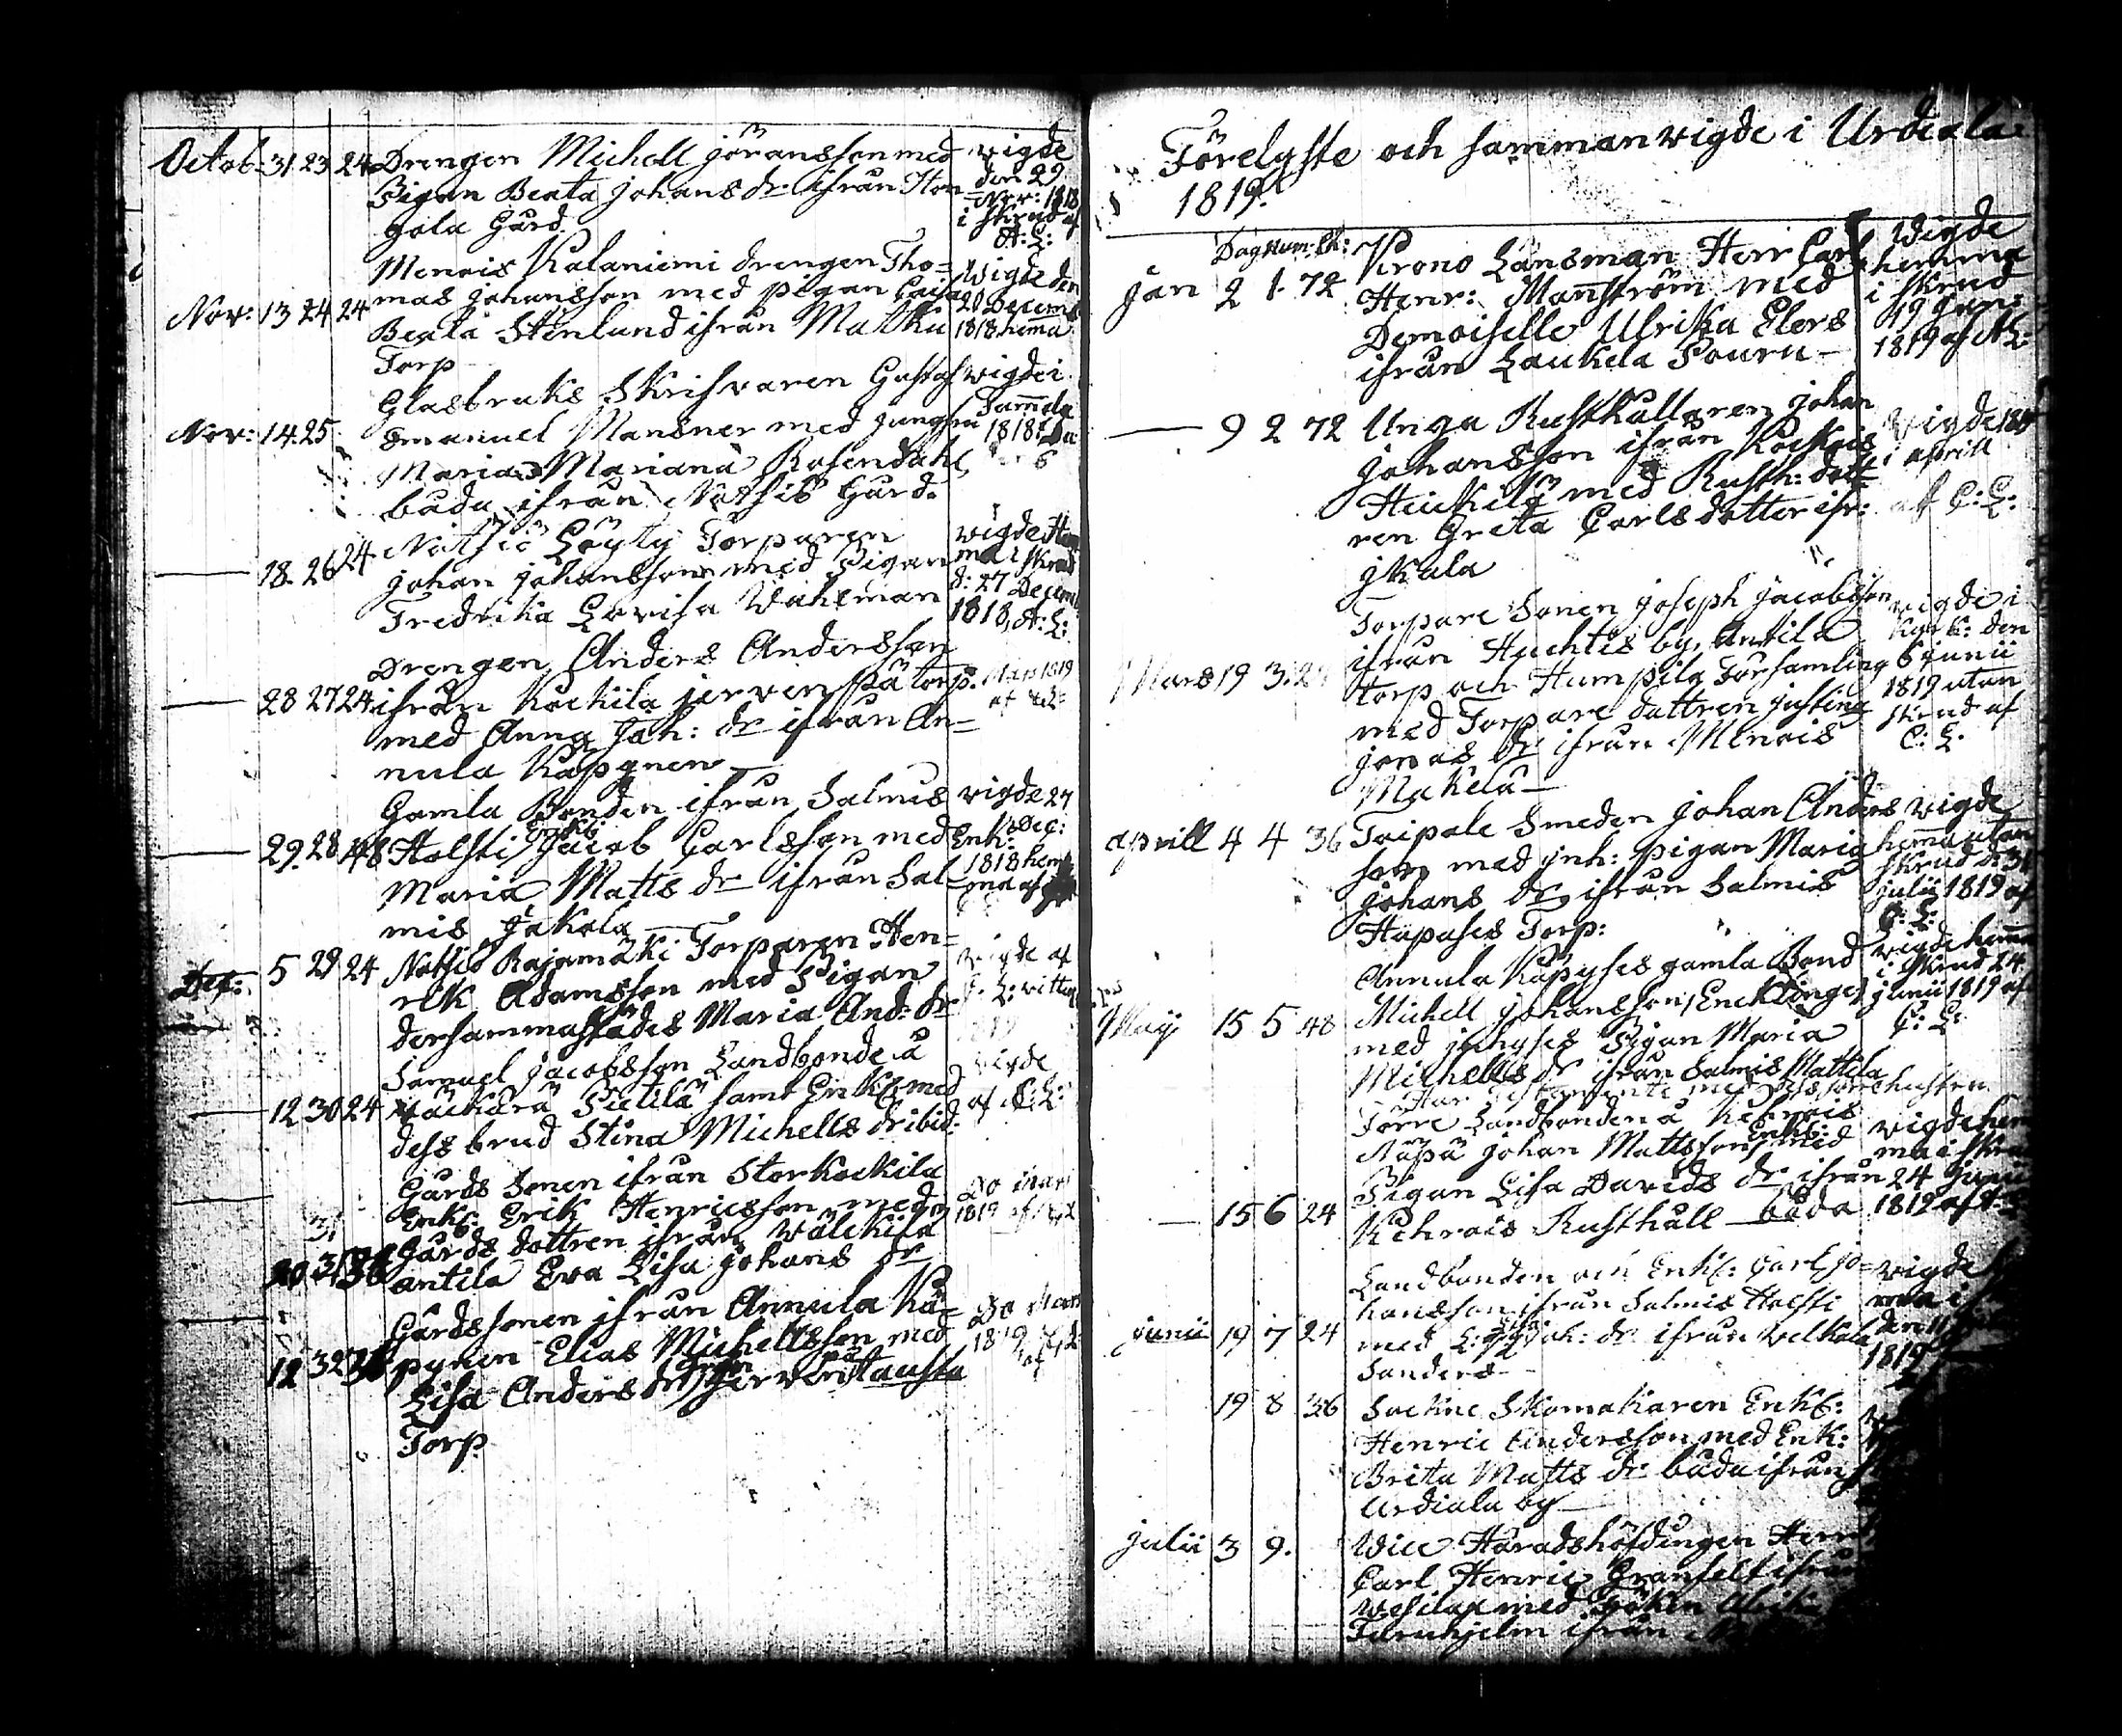 Octob: 31 23 24 Drengen Michell Jöransson med
Pigan Beata Johans dr ifrån Hon-
gola Gård.
vigde
den 29
Nov: 1818
i skrud af
A: L:
Menois Kalaniemi drengen Tho=
Nov: 13 24 24 mas Johansson med pigan Caisa
Beata Stenlund ifrån Matku
Torp
vigde den
20 Decemb
1818 hema
Glasbruks Skrifvaren Gustaf
Nov: 14 25 Emanuel Mansner med Jungfru
Maria Mariana Rosendahl,
båda ifrån Notsjö Gård.
vigde i
Sammola
1818
Notsjö Löyty Torparen
18. 26 24 Johan Johansson med Pigan
Fredrika Lovisa Wahlman
vigde Hem
ma i skrud
d: 27 Decemb
1818, A: L:
Drengen Anders Andersson
28 27 24 ifrån Kockila jerven pä torp.
med Anna Joh: dr ifrån An=
nula Käpynen
Mars 1819
af
Gamla Bonden ifrån Salmis
29. 28 48 Holsti Jacob Carlsson med Enk:
Maria Matts dr ifrån Sal=
mis Jakola
vigde 27
Dec:
1818 hem
ma af
Dec: 5 29 24 Notsiö Rajamäki Torparen Hen=
rik Adamsson med Pigan
dersammastädes Maria And: dr
vigde af
Samuel Jacobsson Landbonde å
12 30 24 Pietilä samt Enkl: med
dess brud Stina Michells dr ibid.
vigde
af C: L:
Gårds Sonen ifrån Storkockila
Enkl: Erik Henricsson med
31
20 31 36 Gårds dottren ifrån Wälckilä
antila Eva Lisa Johans dr
Do Mars
1819 af
Gårdssonen ifrån Annula Kä=
12 32 pynen Elias Michellsson med
Lisa Anders dr från Jerven pä Tausta
Torp.
Do Mars
1819
af
Förelyste och sammanvigde i Urdiala
1819.
Dag Num: Sk:
Jan 2 1. 72 Krono Länsman Herr Carl
Henr: Manström med
Demoiselle Ulrika Elers
ifrån Laukela Pouru
Vigde
hemma
i skrud
19 Jan:
1819 af A L:
9 2 72 Unga Rusthållaren Johan
Johansson ifrån Kockois
Heickilä med Rusth: dott
ren Greta Carlsdotter ifr:
Jkala
Vigde 1819
i aprill
af C: L:
Torpare Sonen Joseph Jacobsson
ifrån Huchtis by, Antila
Mars 19 3. 24 torp och Humpila Församling
med Torpare dottren Justina
Jonas dr ifrån Menois
Makelä
vigde i
Kyrk: den
6 Junii
1819 utan
skrud af
C: L.
Aprill 4 4 36 Toipale Smeden Johan Anders
son med Jnh: pigan Maria
Johans dr ifrån Salmis
Hapases Torp:
vigde
hema utan
skrud d: 31
Julii 1819 af
C: L:
Annula Käpyses gamla Bond
Maij 15 5 48 Michell Johansson, Encklinges
med jnhyses Pigan Maria
Michells dr ifrån Salmis Mattila
vigde hema
i skrud 24
Junii 1819 af
C: L:
Förre Landbonden å Kehrois
Näpä Johan Mattsson, Enkl: med
Pigan Lisa Davids dr ifrån
15 6 24 Kehrois Rusthåll båda
vigde hem
ma i skru
24 Junii
1819 af A: L
Landbonden och Enkl: Carl Jo=
hansson ifrån Salmis Holsti
Junii 19 7 24 med L: Joh: dr ifrån Velkala
Sanders
vigde
ma i
den 11
1819
19 8 36 Sockne Skomakaren Enkl:
Henric Andersson med Enk:
Brita Matts dr båda ifrån
Urdiala by
Julii 3 9. Wice Häradshöfdingen Herr
Carl Henric Granfelt ifrån
med Fröken Ulrika
ifrån